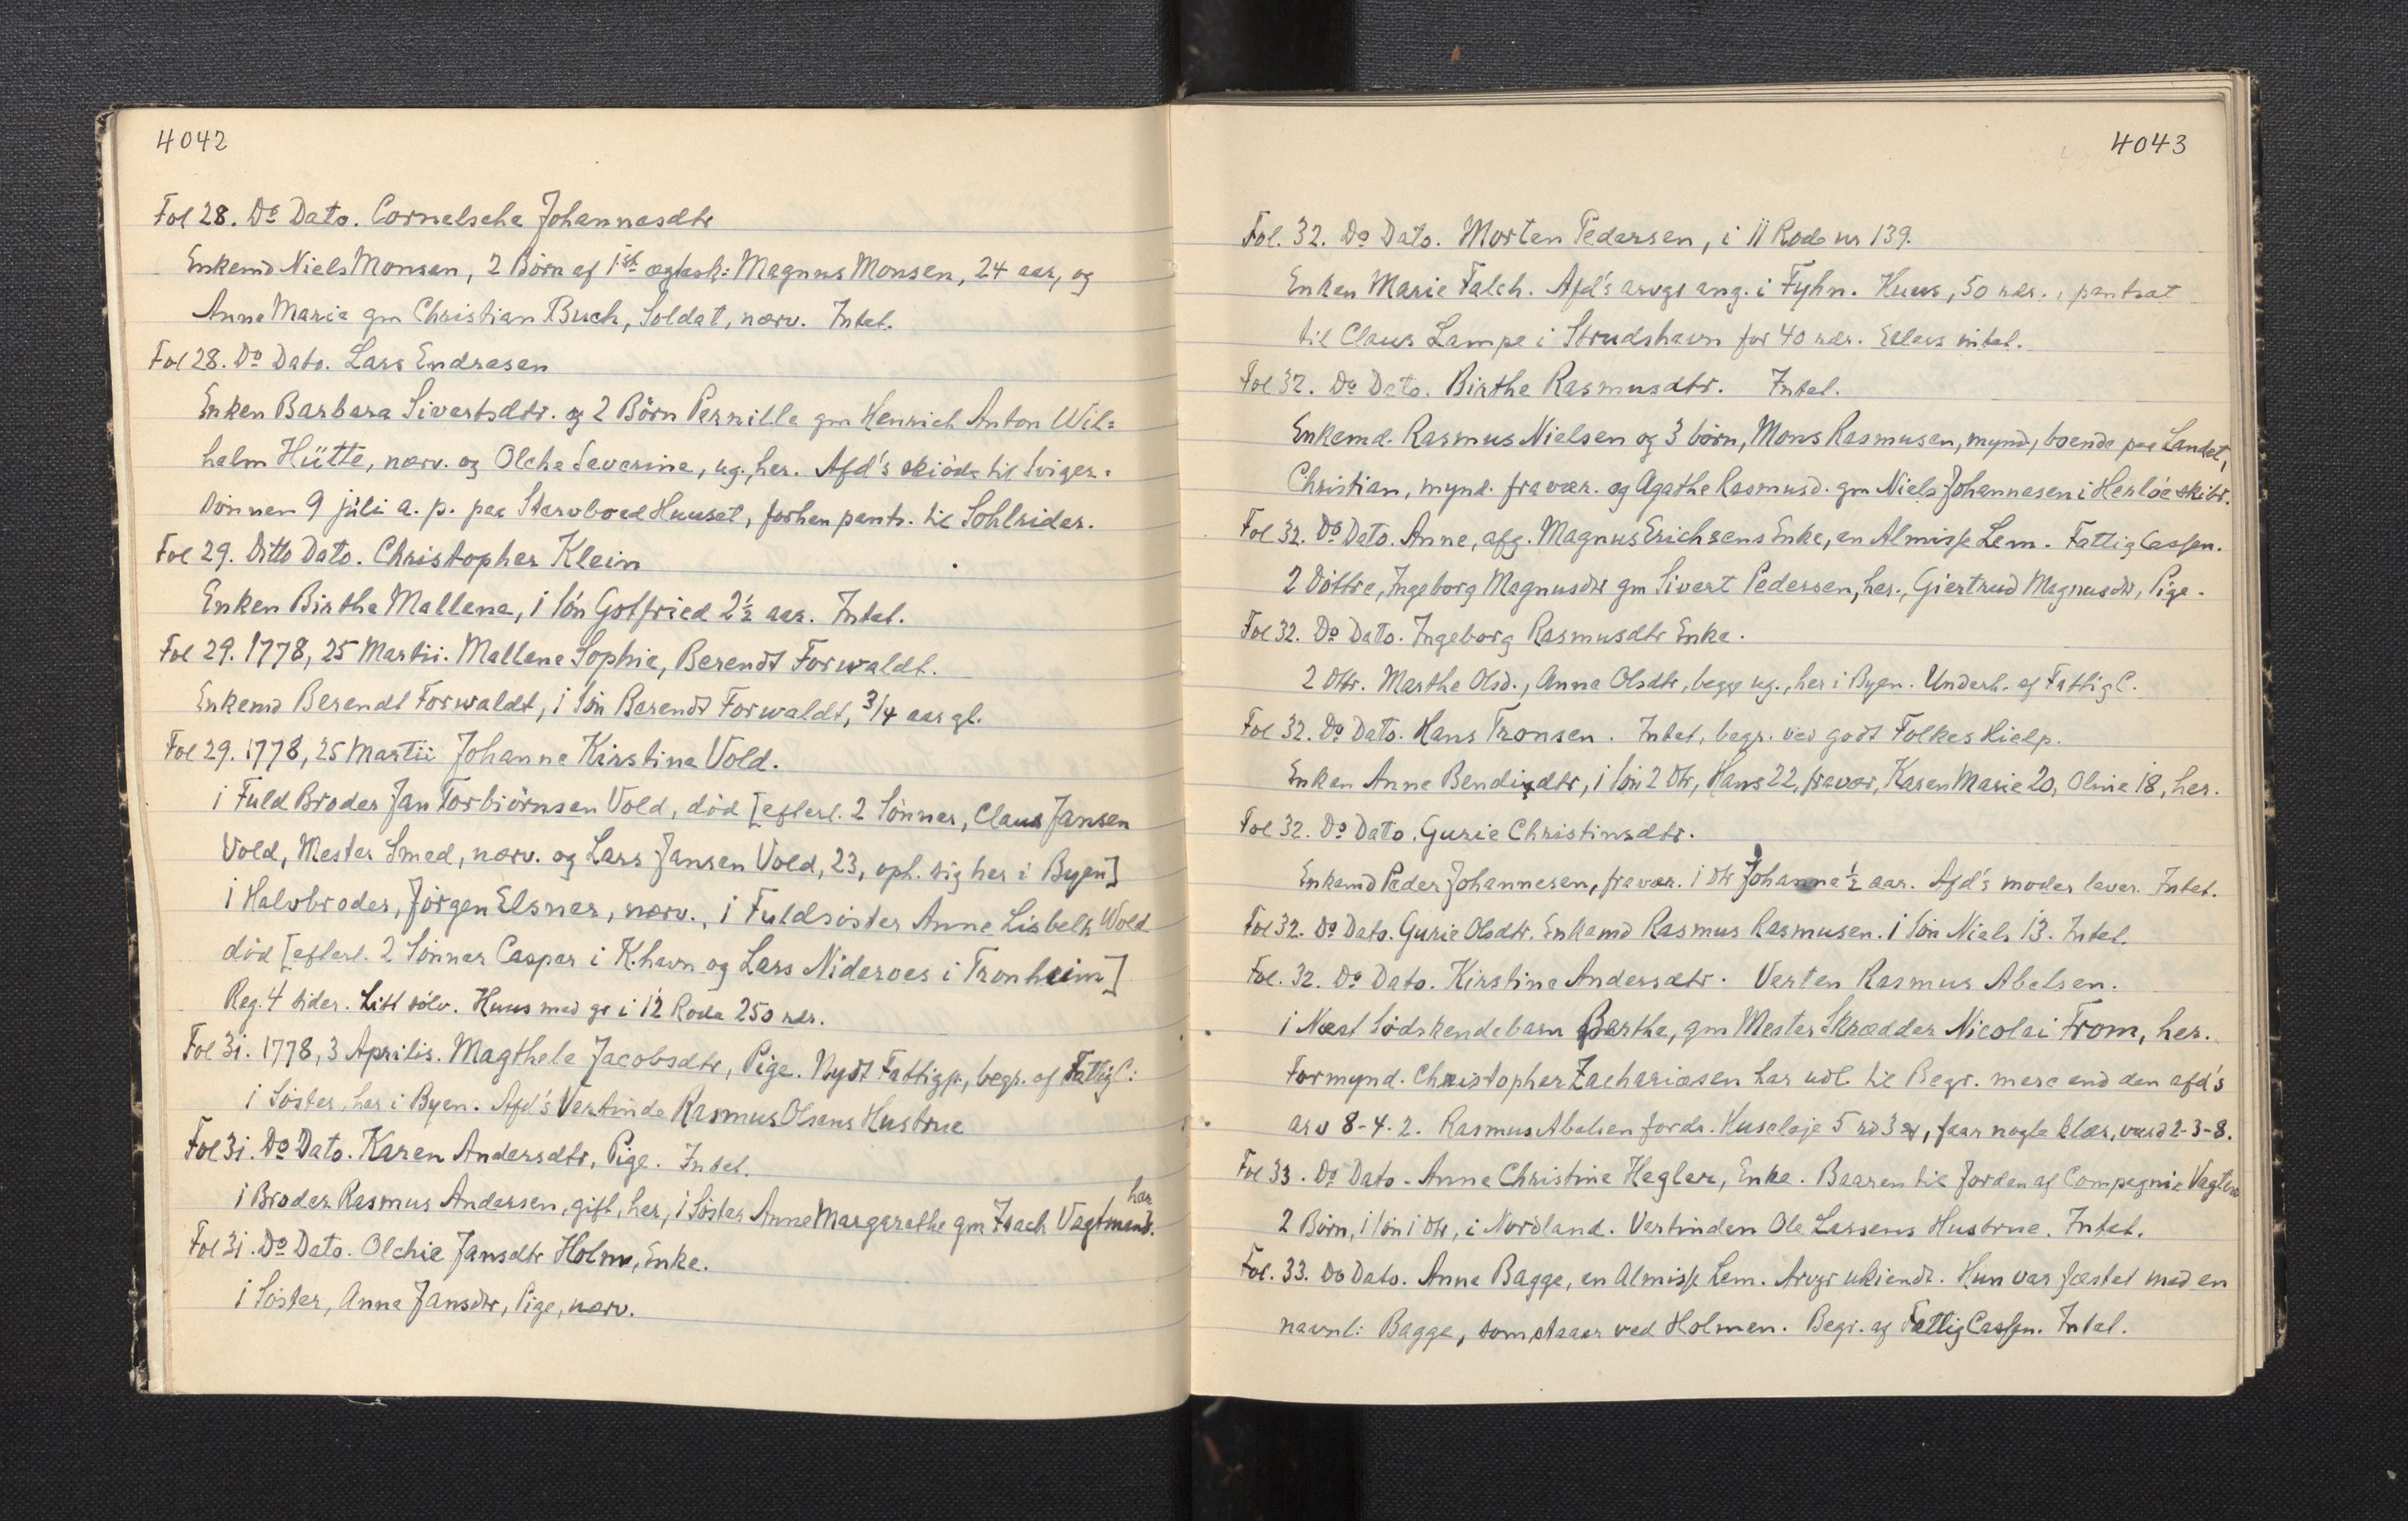 4042
Fol 28. Do Dato. Cornelsche Johannesdtr
Enkemd Niels Monsen, 2 Börn af 1ste ægtesk: Magnus Monsen, 24 aar, og
Anne Maria gm Christian Buch, Soldat, nærv. Intet.
Fol 28. Do Dato. Lars Endresen
Enken Barbara Sivertsdtr. og 2 Börn Pernille gm Henrich Anton Wil=
helm Hütte, nærv. og Olche Severine, ug., her. Afd's skiöde til Sviger=
sönnen 9 juli a. p. paa Stervboed Huuset, forhen pants. til Sohlrider.
Fol 29. Ditto Dato. Christopher Klein
Enken Birthe Mallene, 1 Sön Gotfried 2½ aar. Intet.
Fol 29. 1778, 25 Martii. Mallene Sophie, Berendt Forwaldt.
Enkemd Berendt Forwaldt, 1 Sön Berendt Forwaldt, 3/4 aar gl.
Fol 29. 1778, 25 Martii Johanne Kirstine Vold.
1 Fuld Broder Jan Torbiörnsen Vold, död [efterl. 2 Sönner, Claus Jansen
Vold, Mester Smed, nærv. og Lars Jansen Vold, 23, oph. sig her i Byen]
1 Halvbroder, Jörgen Elsner, nærv., 1 Fuldsöster Anne Lisbeth Wold
död [efterl. 2 Sönner Casper i K.havn og Lars Nideroes i Tronheim]
Reg. 4 sider. Litt sölv. Huus med gr i 12 Rode 250 rdr.
Fol 31. 1778, 3 Aprilis. Magthele Jacobsdtr, Pige. Nydt Fattigp., begr. af FattigC:
1 Söster, her i Byen. Afd's Vertinde Rasmus Olsens Hustrue
Fol 31. Do Dato. Karen Andersdtr, Pige. Intet.
1 Broder Rasmus Andersen, gift, her, 1 Söster Anne Margarethe gm Isach Vagtmand. her
Fol 31. Do Dato. Olchie Jansdtr Holm, Enke.
1 Söster, Anna Jansdtr, Pige, nærv.
4043
Fol. 32. Do Dato. Morten Pedersen, i 11 Rode nr 139.
Enken Marie Falch. Afd's arvgr ang. i Fyhn. Huus, 50 rdr., pantsat
til Claus Lampe i Strudshavn for 40 rdr. Ellers intet.
Fol 32. Do Dato. Birthe Rasmusdtr. Intet.
Enkemd. Rasmus Nielsen og 3 börn, Mons Rasmusen, mynd., boende paa Landet,
Christian, mynd. fravær. og Agathe Rasmusd. gm Niels Johannesen i Herlöe skibr.
Fol 32. Do Dato. Anne, afg. Magnus Erichsens Enke, en Almisse Lem. Fattig Cassen.
2 Döttre, Ingeborg Magnusdtr gm Sivert Pedersen, her., Giertrud Magnusdtr, Pige.
Fol 32. Do Dato. Ingeborg Rasmusdtr Enke.
2 Dtr. Marthe Olsd., Anne Olsdtr, begge ug., her i Byen. Underh. af FattigC.
Fol 32. Do Dato. Hans Tronsen. Intet, begr. ved godt Folkes Hielp.
Enken Anne Bendixdtr, 1 Sön 2 Dtr, Hans 22, fravær, Karen Marie 20, Olmie 18, her.
Fol 32. Do Dato. Gurie Christinsdtr.
Enkemd Peder Johannesen, fravær. 1 Dtr Johanna ½ aar. Afd's moder lever. Intet.
Fol 32. Do Dato. Gurie Olsdtr. Enkemd Rasmus Rasmusen. 1 Sön Niels 13. Intet.
Fol. 32. Do Dato. Kirstine Andersdtr. Verten Rasmus Abelsen.
1 Næst Södskendebarn Berthe, gm Mester Skrædder Nicolai From, her.
Formynd. Christopher Zachariasen har udl. til Begr. mere end den afd's
arv 8-4-2. Rasmus Abelsen fordr. Huseleje 5 rd 3 mk, faar nogle klær, værd 2-3-8.
Fol 33. Do Dato. Anne Christine Hegler, Enke. Baaren til Jorden af Compagnie Vagten
2 Börn, 1 Sön 1 Dtr, i Nordland. Vertinden Ole Larsens Hustrue. Intet.
Fol. 33. Do Dato. Anne Bagge, en Almisse Lem. Arvgr ukiendt. Hun var fæstet med en
navnl: Bagge, som staaer ved Holmen. Begr. af Fattig Cassen. Intet.